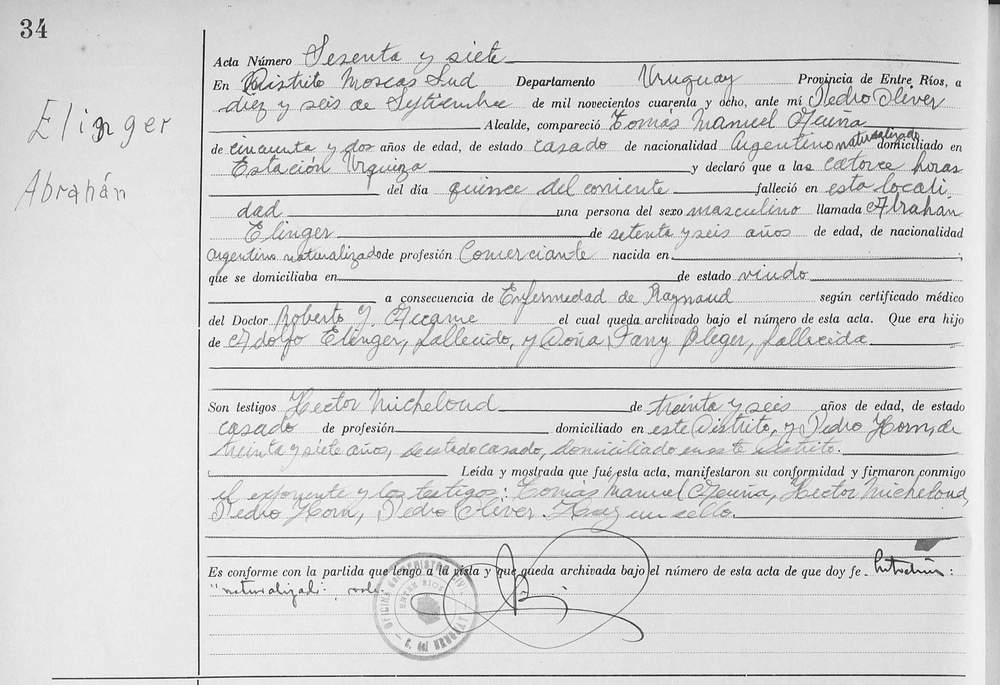 34
Elinger
Abrahán
Acta Número Sesenta y siete
En Distrito Moscas Sud Departamento Uruguay Provincia de Entre Ríos, a
diez y seis de Septiembre de mil novecientos cuarenta y ocho, ante mí Pedro Oliver
Alcalde, compareció Tomás Manuel Acuña
de cincuenta y dos años de edad, de estado casado de nacionalidad Argentino naturalizado domiciliado en
Estación Urquiza y declaró que a las catorce horas
del día quince del corriente falleció en esta locali
dad una persona del sexo masculino llamada Abrahán
Elinger de setenta y seis años de edad, de nacionalidad
argentino naturalizado de profesión Comerciante nacida en
que se domiciliaba en de estado viudo
a consecuencia de Enfermedad de Raynaud según certificado médico
del Doctor Roberto J. Accame el cual queda archivado bajo el número de esta acta. Que era hijo
de Adolfo Elinger, fallecido, y Doña Fany Bleger, fallecida
Son testigos Hector Micheloud de treinta y seis años de edad, de estado
casado de profesión domiciliado en este Distrito, y Pedro Horn, de
treinta y siete años, de estado casado, domiciliado en este distrito.
Leída y mostrada que fué esta acta, manifestaron su conformidad y firmaron conmigo
el exponente y los testigos: Tomás Manuel Acuña, Hector Micheloud,
Pedro Horn, Pedro Oliver. Hay un sello.
Es conforme con la partida que tengo a la vista y que queda archivada bajo el número de esta acta de que doy fe.
"naturalizado" vale
OFICINA REGISTRO CIVIL
ENTRE RIOS
C. del URUGUAY